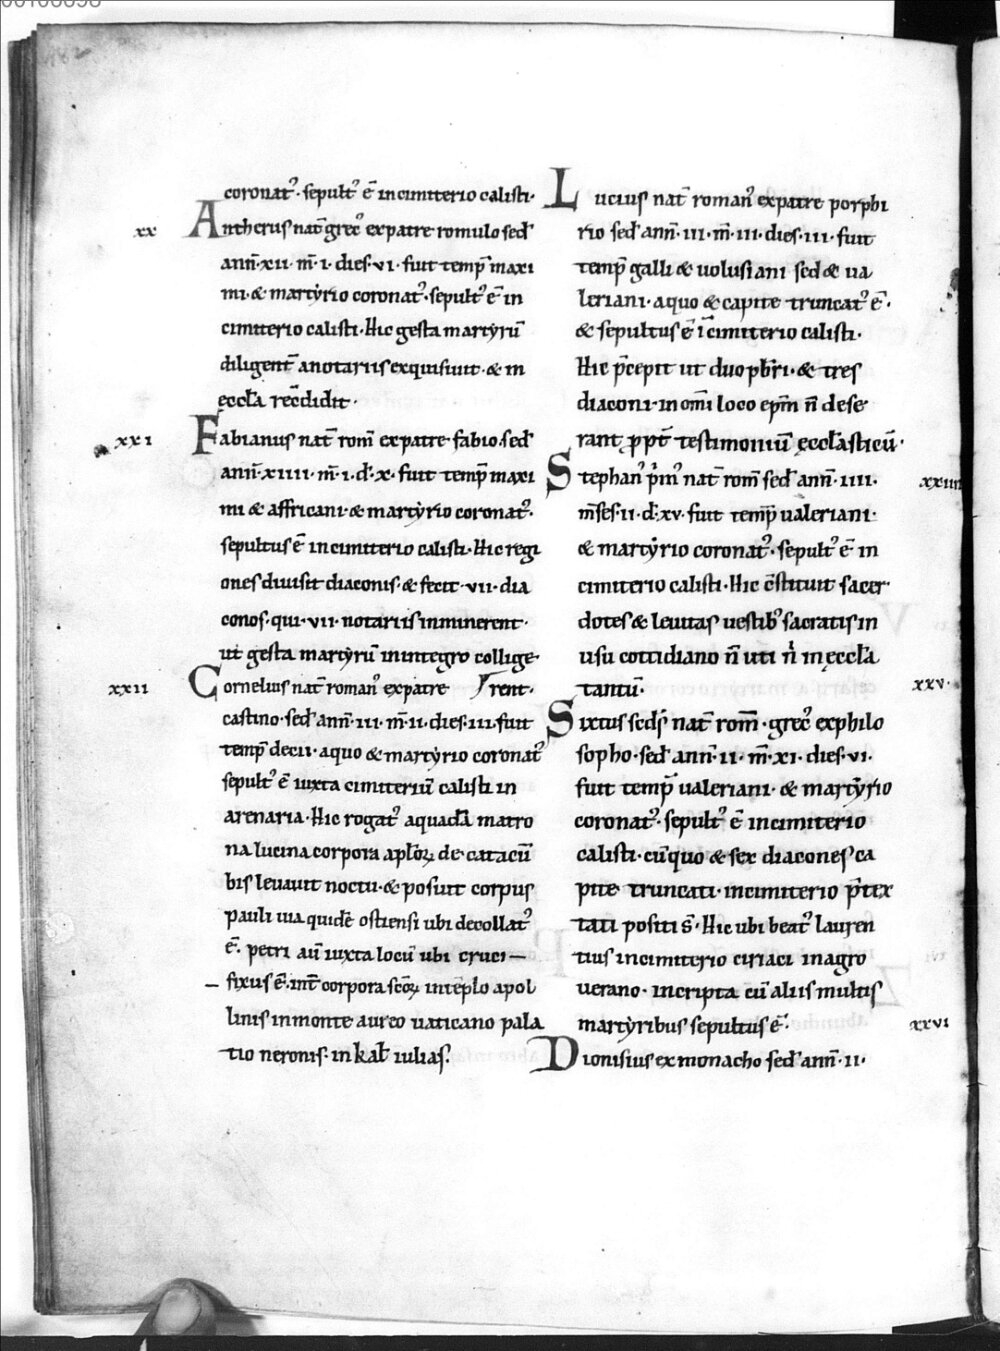 coronatꝰ. sepultꝰ ē in cimiterio calisti.
xx Antherus nat̄ grecꝰ ex patre romulo sed̛
ann̄. xii. m̄. i. dies. vi. fuit temp̄ maxi
mi. & martẏrio coronatꝰ. sepultꝰ ē in
cimiterio calisti. Hic gesta martyrū
diligent̄ a notariis exquisiuit. & in
ęccl̄a rec̄didit.
xxi Fabianus nat̄ rom̄ ex patre fabio. sed̛
ann̄. xiiii. m̄. i. d̛. x. fuit temp̄ maxi
mi & affricani. & martẏrio coronatꝰ.
sepultus ē in cimiterio calisti. Hic regi
ones diuisit diaconis. & fecit. vii. dia
conos. qui. vii. notariis inminerent.
ut gesta martẏrū in integro collige
rent.
xxii Cornelius nat̄ romanꝰ ex patre
castino. sed̛ ann̄. iii. m̄. ii. dies. iii. fuit
temp̄ decii. a quo & martẏrio coronatꝰ
sepultꝰ ē iuxta cimiteriū calisti in
arenaria. Hic rogatꝰ a quadā matro
na lucina corpora aplōꝝ de catacū
bis leuauit noctu. & posuit corpus
pauli uia quidē ostiensi ubi decollatꝰ
ē. petri aū iuxta locū ubi cruci–
– fixus ē. int̄ corpora sc̄oꝝ in tēplo apol
linis in monte aureo uaticano pala
tio neronis. in kal̄ iulias.
Lucius nat̄ romanꝰ ex patre porphi
rio sed̛ ann̄. iii. m̄. iii. dies. iii. fuit
temp̄ galli & uolusiani sed & ua
leriani. a quo & capite truncatꝰ ē.
& sepultus ē ī cimiterio calisti.
Hic p̄cepit ut duo pb̄ri. & tres
diaconi. in om̄i loco ep̄m n̄ dese
rant ꝓpt̄ testimoniū ęccl̄asticū.
Stephanꝰ p̍mꝰ nat̄ rom̄ sed̛ ann̄. iiii. xxiiii
m̄ses. ii. d̛. xv. fuit temp̄ ualeriani.
& martẏrio coronatꝰ. sepultꝰ ē in
cimiterio calisti. Hic c̄stituit sacer
dotes & leuitas uestibꝰ sacratis in
usu cottidiano n̄ uti n̍ in ęccl̄a
tantū. xxv.
Sixtus sed̛s nat̄ rom̄. grecꝰ ex philo
sopho. sed̛ ann̄. ii. m̄. xi. dies. vi.
fuit temp̄ ualeriani. & martẏrio
coronatꝰ. sepultꝰ ē in cimiterio
calisti. cū quo & sex diacones ca
pite truncati. in cimiterio p̄tex
tati positi s̄. Hic ubi beatꝰ lauren
tius in cimiterio ciriaci in agro
uerano. in cripta cū aliis multis
martẏribus sepultus ē.
Dionisius ex monacho sed̛ ann̄. ii. xxvi